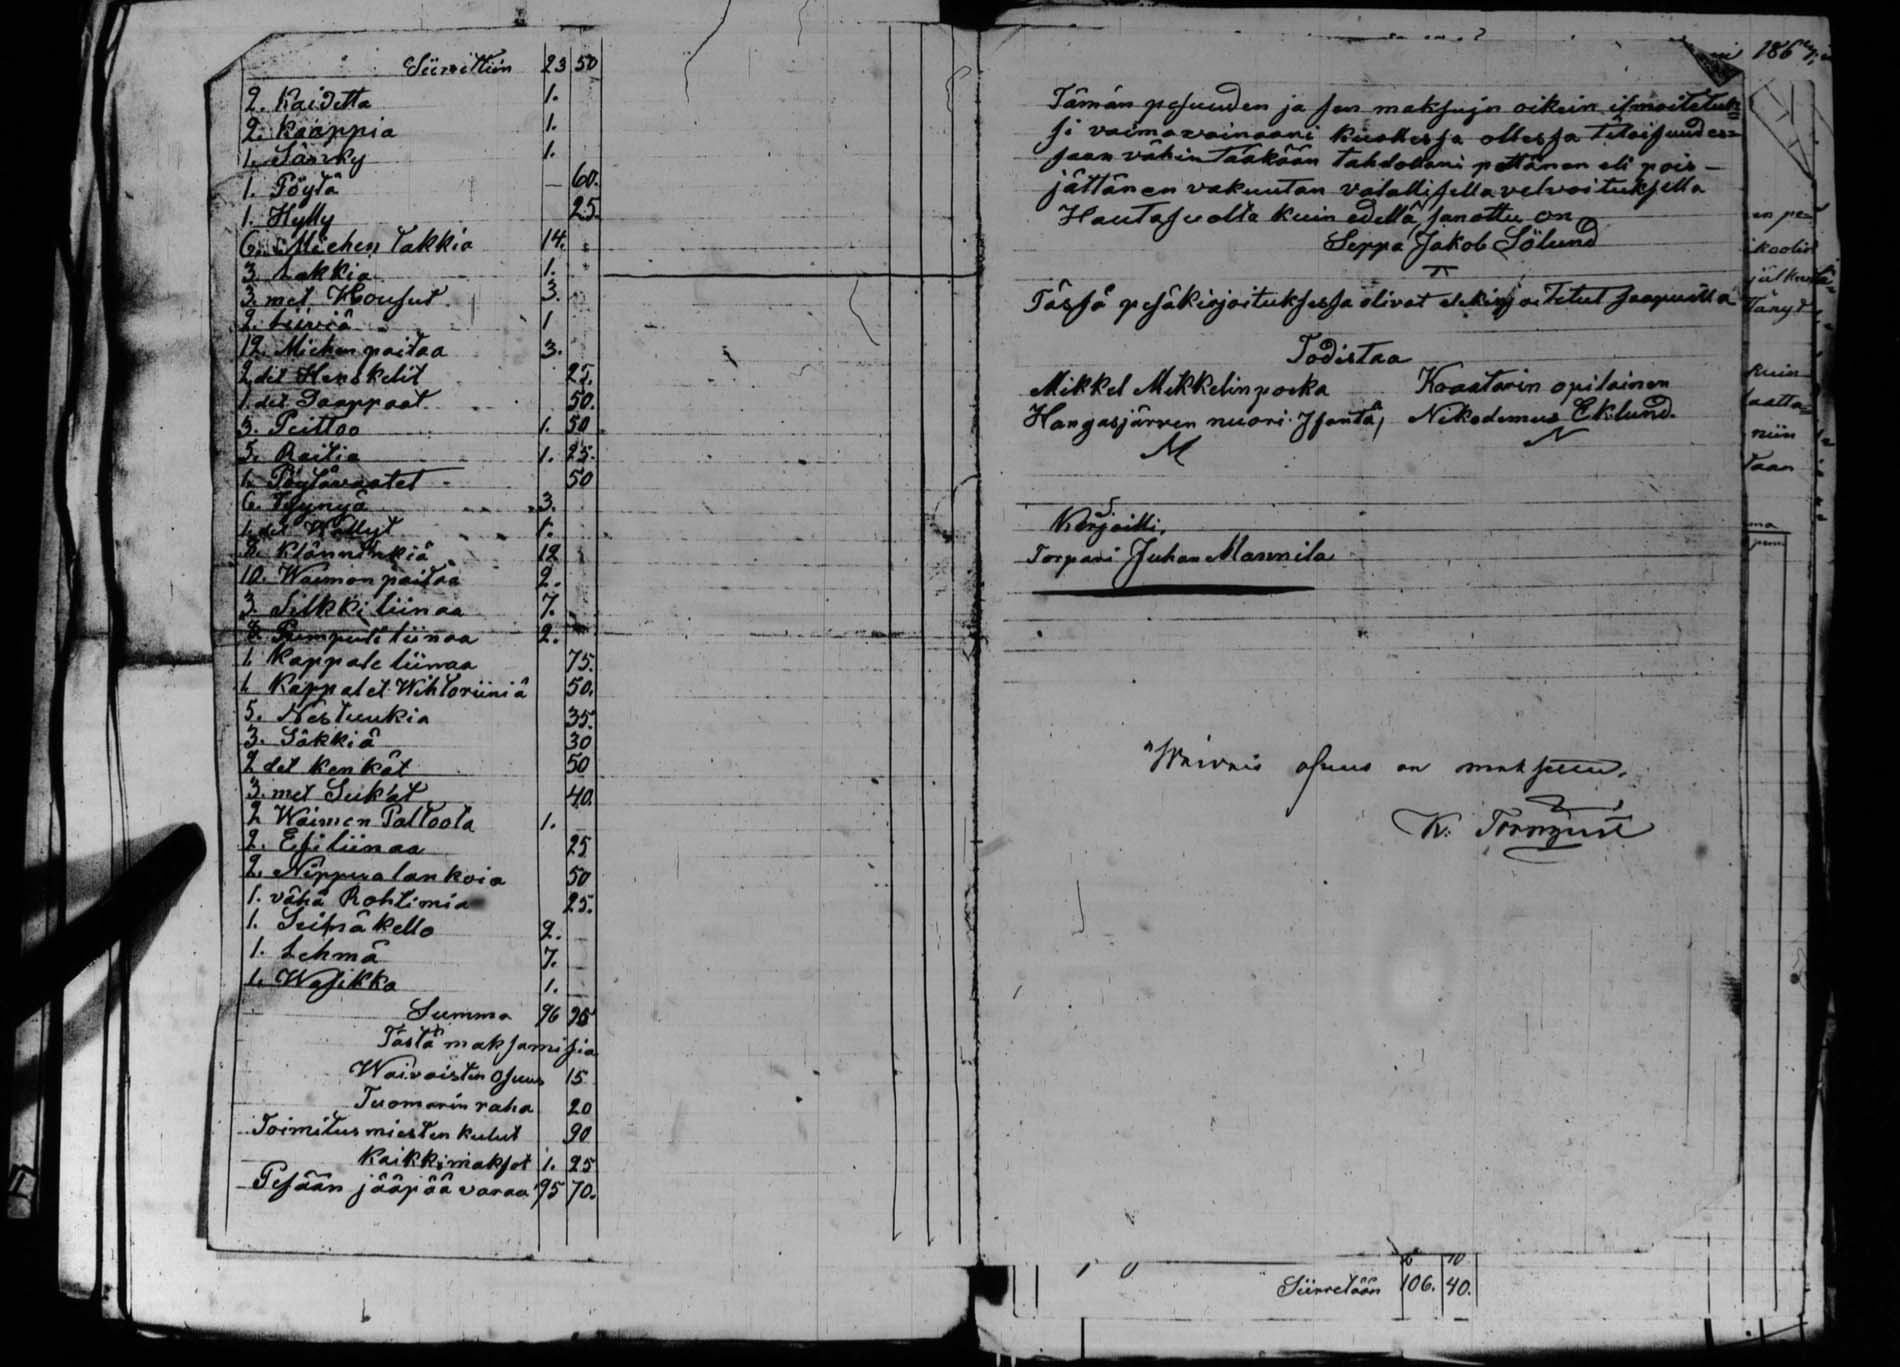 Siirrettiin 23 50
2. Kaidetta 1.
2. Kaappia 1.
1. Sänky 1.
1. Pöytä – 60.
1. Hylly 25.
6. Miehen takkia 14.
3. Lakkia 1.
3. met Housut 3.
2. Liiviä 1
12. Miehen paitaa 3.
2 det Henskelit 25.
1. det Saappaat 50.
3. Peittoo 1. 50
5. Raitia 1. 25.
1. Pöytävaatet 50
6. Tyynyä 3.
1. det 1.
8. Klänninkiä 12
10. Waimon paitaa 2.
3. Silkki liinaa 7.
8. Pumpuli liinaa 2.
1. Kappale liinaa 75.
1. Kappalet Wihtoriiniä 50.
5. Nestuukia 35.
3. Säkkiä 30
2 det Kenkät 50
3. met Sukat 40.
2 Waimon Paltoota 1.
2. Esiliinaa 25
2. Nippua lankoia 50
1. vähä Rohtimia 25.
1. Seinäkello 2.
1. Lehmä 7.
1. Wasikka 1.
Summa 96 95
Tästä maksamisia
Waivaisten osuus 15
Tuomarin raha 20
Toimitusmiesten kulut 90
Kaikki maksot 1. 25
Pesään jääpää varaa 95 70.
186
Tämän pesuuden ja sen maksujn oikein ilmoitetuk=
si vaimovainaani kuollessa ollessa tilaisuudes=
saan vähintäkään tahdollani pettänen eli pois –
jättänen vakuutan valallisella velvoituksella
Hautasuolta kuin edellä sanottu on
Seppä Jakob Sölund
Tässä pesäkirjoituksessa olivat allekirjoitetut saapuilla
Todistaa
Mikkel Mikkelinpoika Kraatarin opilainen
Hangasjärven nuori Isäntä, Nikodemus Eklund.
M N
Kirjoitti,
Torpari Juhan Mannila
Waivais osuus on maksettu.
K. Törnqvist
en pe=
ikoolin
jälkeen
Tänyt
Kuin
laatta=
niin
taan
ma
Siirretään 106. 40.